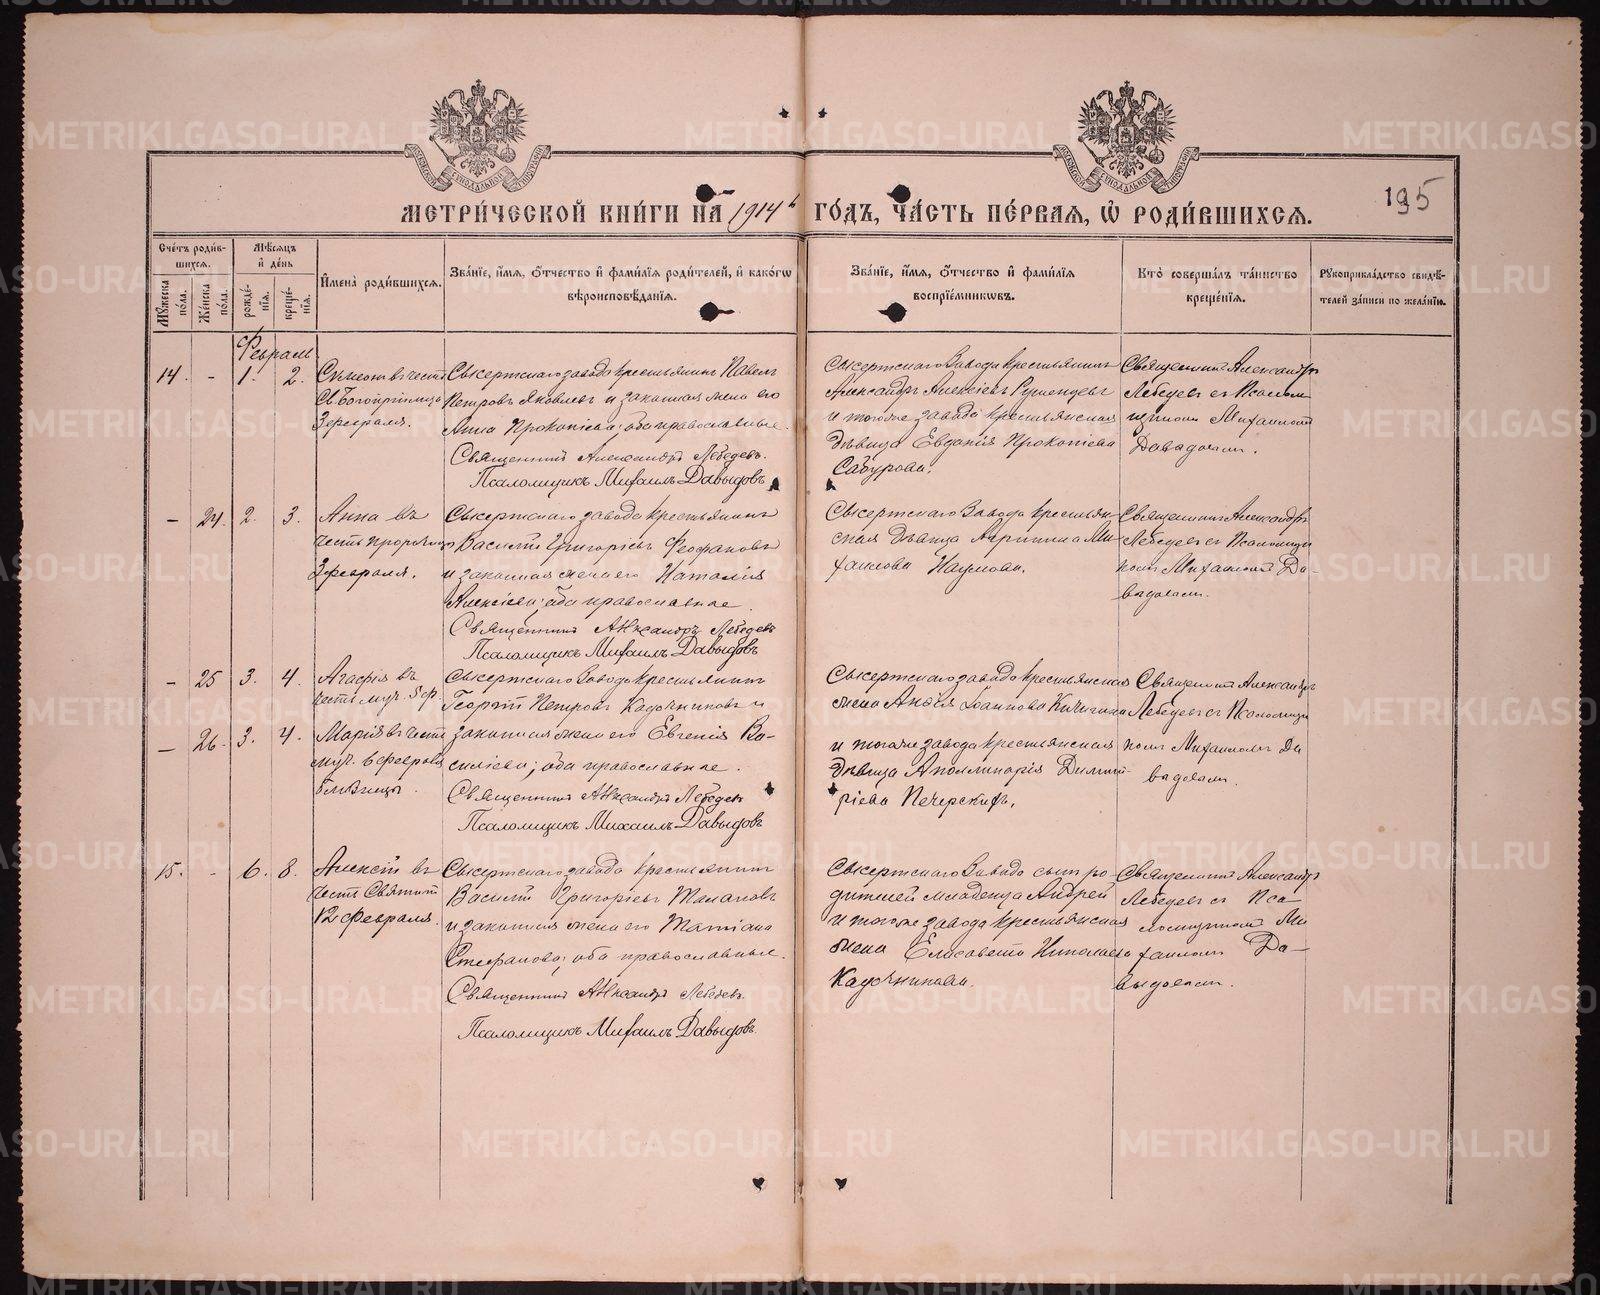 МОСКОВСКОЙ СУНОДАЛЬНОЙ ТИПОГРАФІИ
МОСКОВСКОЙ СУНОДАЛЬНОЙ ТИПОГРАФІИ
МЕТРИ́ЧЕСКОЙ КНИ́ГИ НА 1914й ГО́ДЪ, ЧА́СТЬ ПЕ́РВАЯ, Ѽ РОДИ́ВШИХСЯ.
195
Сче́тъ роди́в-
шихся.
Мꙋ́жеска по́ла.
Же́нска по́ла.
Мѣ́сяцъ
и҆ де́нь
рожде́-
нія.
креще́-
нія.
И҆мена̀ роди́вшихся.
Зва́ніе, и҆́мя, ѻ҆́тчество и҆ фами́лія роди́телей, и҆ како́гѡ
вѣроисповѣ́данія.
Зва́ніе, и҆́мя, ѻ҆́тчество и҆ фами́лія
воспріе́мникѡвъ.
Кто̀ соверша́лъ та́инство
креще́нія.
Рꙋкоприкла́дство свидѣ́-
телей за́писи по жела́нію.
Февраль
14. - 1. 2.
Симеонъ въ честь
Св. Богопріимца
3 февраля.
Сысертскаго завода крестьянинъ Павелъ
Петровъ Яковлевъ и законная жена его
Анна Прокопіева; оба православные.
Священникъ Александръ Лебедевъ.
Псаломщикъ Михаилъ Давыдовъ
Сысертскаго завода крестьянинъ
Александръ Алексѣевъ
и тогоже завода крестьянская
дѣвица Евдокія Прокопіева
Сабурова.
Священникъ Александръ
Лебедевъ съ Псалом-
щикомъ Михаиломъ
Давыдовымъ.
- 24. 2. 3.
Анна въ
честь пророчицы
3 февраля.
Сысертскаго завода крестьянинъ
Василій Григорьевъ Феофановъ
и законная жена его Наталія
Алексѣева; оба православные.
Священникъ Александръ Лебедевъ
Псаломщикъ Михаилъ Давыдовъ
Сысертскаго завода крестьян-
ская дѣвица Агриппина Ми-
хаилова Наумова.
Священникъ Александръ
Лебедевъ съ Псаломщи-
комъ Михаиломъ Да-
выдовымъ.
- 25 3. 4.
Агафія въ
честь муч. 5 ф.
- 26. 3. 4.
Марія въ честь
муч. 6 февраля
близнецы.
Сысертскаго завода крестьянинъ
Георгій Петровъ Кадочниковъ и
законная жена его Евгенія Ва-
силіева; оба православные.
Священникъ Александръ Лебедевъ
Псаломщикъ Михаилъ Давыдовъ
Сысертскаго завода крестьянская
жена Іоаннова Кичигина
и тогоже завода крестьянская
дѣвица Аполлинарія Димит-
ріева Печерскихъ.
Священникъ Александръ
Лебедевъ съ Псаломщи-
комъ Михаиломъ Да-
выдовымъ.
15. - 6. 8.
Алексій въ
честь Святит.
12 февраля.
Сысертскаго завода крестьянинъ
Василій Григорьевъ Талановъ
и законная жена его Татіана
Стефанова; оба православные.
Священникъ Александръ Лебедевъ.
Псаломщикъ Михаилъ Давыдовъ.
Сысертскаго завода сынъ ро-
дителей младенца Андрей
и тогоже завода крестьянская
жена Елисавета Николаева
Кадочникова.
Священникъ Александръ
Лебедевъ съ Пса-
ломщикомъ Ми-
хаиломъ Да-
выдовымъ.
METRIKI.GASO-URAL.RU